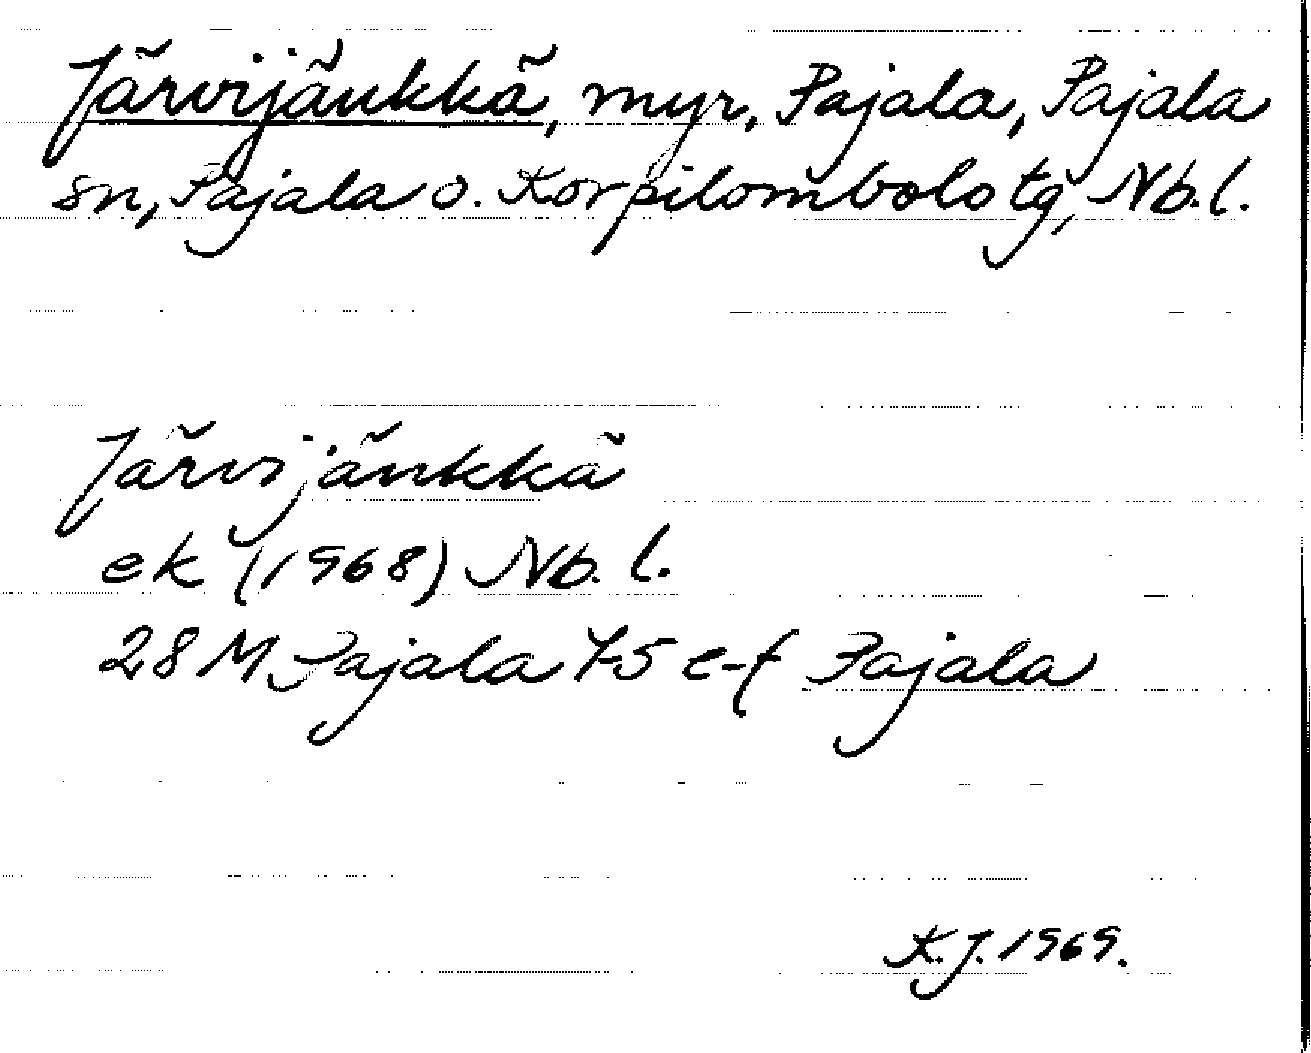 Järvijänkkä, myr, Pajala, Pajala
sn, Pajala o. Korpilombolo tg, Nb.l.
Järvijänkkä
ek (1968) Nb. l.
28 M Pajala 7-5 e-f Pajala
K.J. 1969.